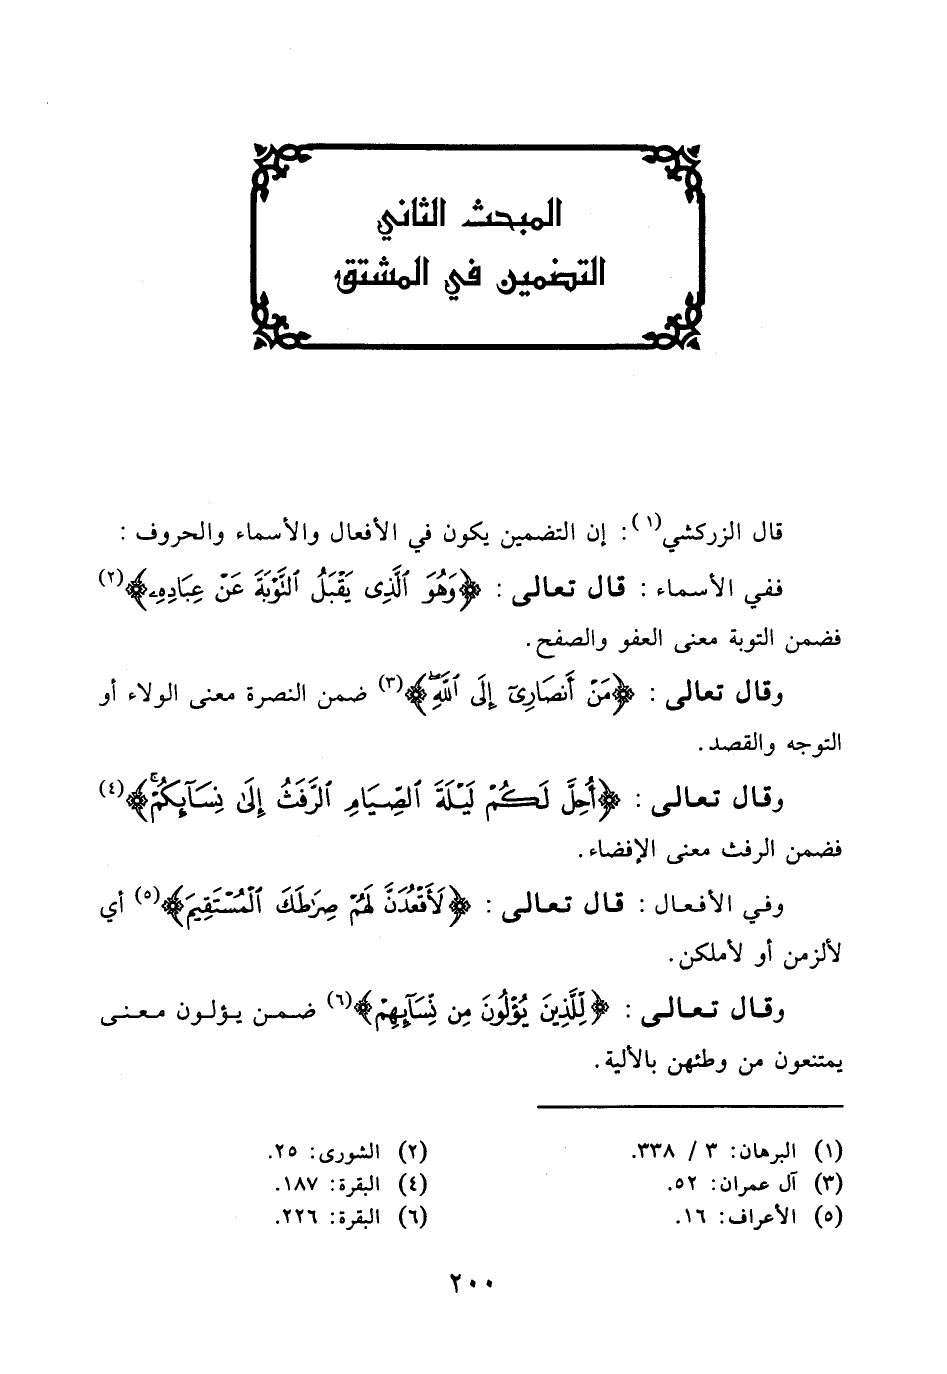 المبحث الثاني
التضمين في المشتق
قال الزركشي(١): إن التضمين يكون في الأفعال والأسماء والحروف:
ففي الأسماء: قال تعالى: ﴿وَهُوَ ٱلَّذِى يَقْبَلُ ٱلتَّوْبَةَ عَنْ عِبَادِهِۦ﴾(٢)
فضمن التوبة معنى العفو والصفح.
وقال تعالى: ﴿مَنْ أَنصَارِىٓ إِلَى ٱللَّهِۖ﴾(٣) ضمن النصرة معنى الولاء أو
التوجه والقصد.
وقال تعالى: ﴿أُحِلَّ لَكُمْ لَيْلَةَ ٱلصِّيَامِ ٱلرَّفَثُ إِلَىٰ نِسَآئِكُمْۚ﴾(٤)
فضمن الرفث معنى الإفضاء.
وفي الأفعال: قال تعالى: ﴿لَأَقْعُدَنَّ لَهُمْ صِرَٰطَكَ ٱلْمُسْتَقِيمَ﴾(٥) أي
لألزمن أو لأملكن.
وقال تعالى: ﴿لِّلَّذِينَ يُؤْلُونَ مِن نِّسَآئِهِمْ﴾(٦) ضمن يؤلون معنى
يمتنعون من وطئهن بالألية.
(١) البرهان: ٣ / ٣٣٨. (٢) الشورى: ٢٥.
(٣) آل عمران: ٥٢. (٤) البقرة: ١٨٧.
(٥) الأعراف: ١٦. (٦) البقرة: ٢٢٦.
٢٠٠